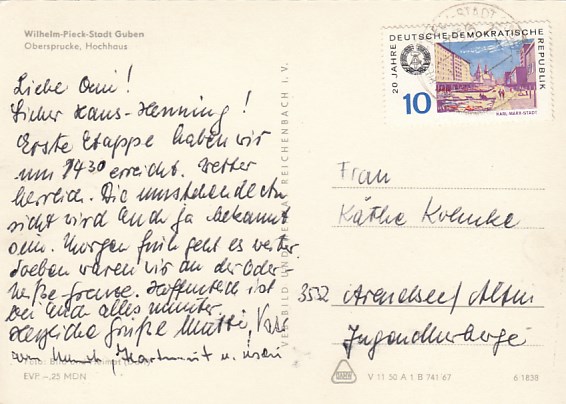 Wilhelm-Pieck-Stadt Guben
Obersprucke, Hochhaus
Liebe Omi!
Lieber Hans-Henning!
Erste Etappe haben wir
um 1430 erreicht. Wetter
herrlich. Die umstehende An
sicht wird Euch ja bekannt
sein. Morgen früh geht es weiter.
Soeben waren wir an der Oder
Neiße Grenze. Hoffentlich ist
bei Euch alles munter.
Herzliche Grüße Mutti,
Hartmut u.
EVP -,25 MDN
REICHENBACH I. V.
20 JAHRE DEUTSCHE DEMOKRATISCHE REPUBLIK
10
KARL-MARX-STADT
Frau
Käthe
3552 Arendsee/Altm
Jugendherberge
V 11 50 A 1 B 741/67
6/1838